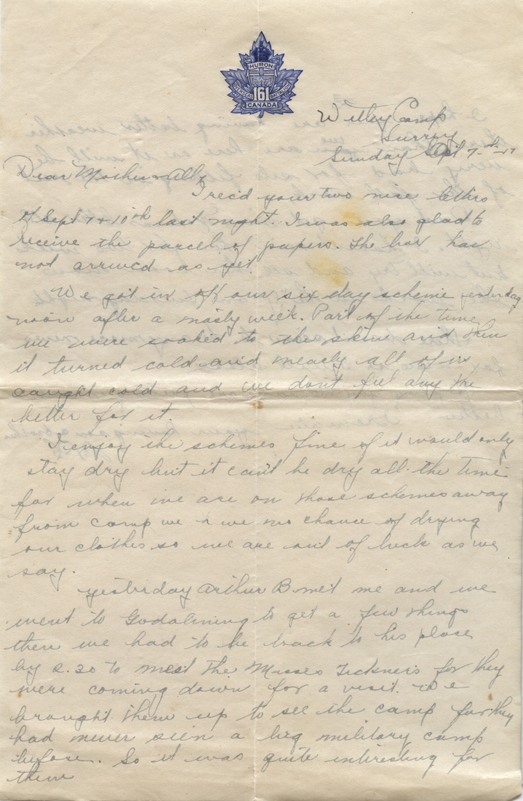 HURON
161
CANADA
Witley Camp
Surrey
Sunday 7th 17
Dear Mother & All,
I rec'd your two nice letters
of Sept 7 & 10th last night. I was also glad to
receive the parcel of papers. The box has
not arrived as yet.
We got in off our six day scheme yesterday
noon after a nasty week. Part of the time
we were soaked to the skine and then
it turned cold and nearly all of us
caught cold and we don't feel any the
better for it.
I enjoy the schemes fine if it would only
stay dry but it can't be dry all the time
for when we are on those schemes away
from camp we have no chance of drying
our clothes so we are out of luck as we
say.
Yesterday Arthur B met me and we
went to Godalming to get a few things
then we had to be back to his place
by 2.30 to meet the Misses Tickners for they
were coming down for a visit. We
brought them up to see the camp for they
had never seen a big military camp
before. So it was quite interesting for
them